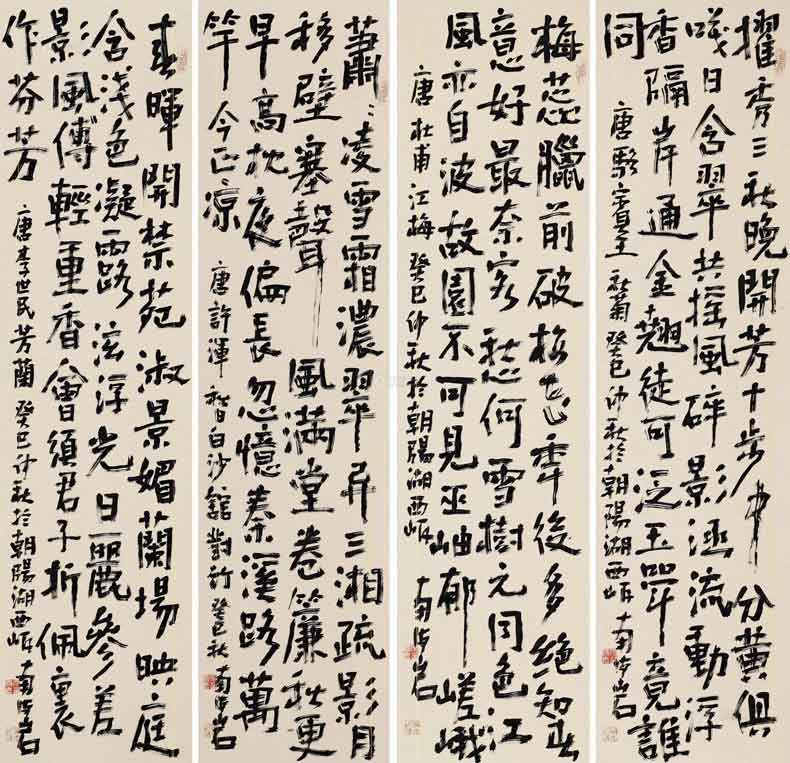 擢秀三秋晚開芳十步中分黄俱
咲日含翠共摇風碎影涵流動浮
香隔岸通金翹徒可泛玉斝竟誰
同
唐駱賓王秋菊癸巳仲秋於朝陽湖西岸
梅蕊臘前破梅花年後多絶知春
意好最奈客愁何雪樹元同色江
風亦自波故園不可見巫岫郁嵯峨
唐杜甫江梅癸巳仲秋於朝陽湖西岸
蕭〻凌雪霜濃翠异三湘疏影月
移壁寒聲風满堂卷簾秋更
早高枕夜偏長忽憶秦溪路萬
竿今正凉
唐許渾秋日白沙館對竹癸巳秋
春暉開禁苑淑景媚蘭場映庭
含淺色凝露泫浮光日麗參差
影風傳輕重香會須君子折佩裏
作芬芳
唐李世民芳蘭癸巳仲秋於朝陽湖西岸